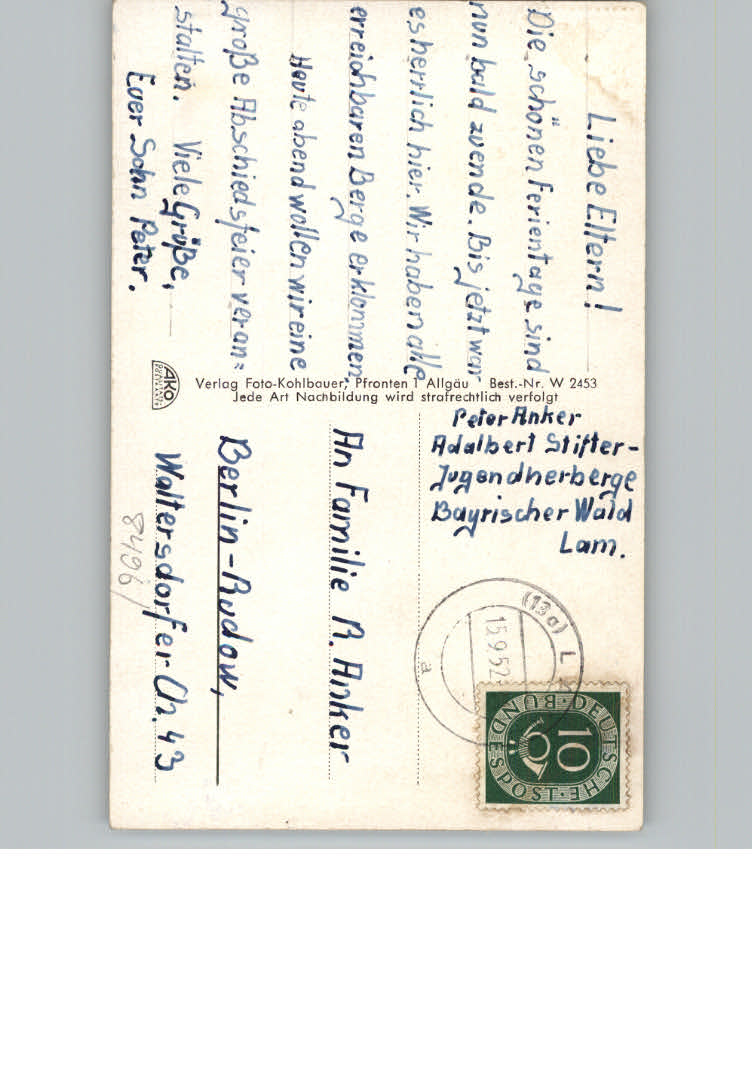 Liebe Eltern!
Die schönen Ferientage sind
nun bald zuende. Bis jetzt war
es herrlich hier. Wir haben alle
erreichbaren Berge erklommen.
Heute abend wollen wir eine
große Abschiedsfeier veran=
stalten. Viele Grüße,
Euer Sohn Peter.
AKO
Verlag Foto-Kohlbauer, Pfronten 1 Allgäu Best.-Nr. W 2453
Jede Art Nachbildung wird strafrechtlich verfolgt
Peter Anker
Adalbert Stifter-
Jugendherberge
Bayrischer Wald
Lam.
(13a) L
15.9.52
a
DEUTSCHE BUNDESPOST
10
An Familie R. Anker
Berlin-Rudow,
Waltersdorfer Ch. 43
8496/